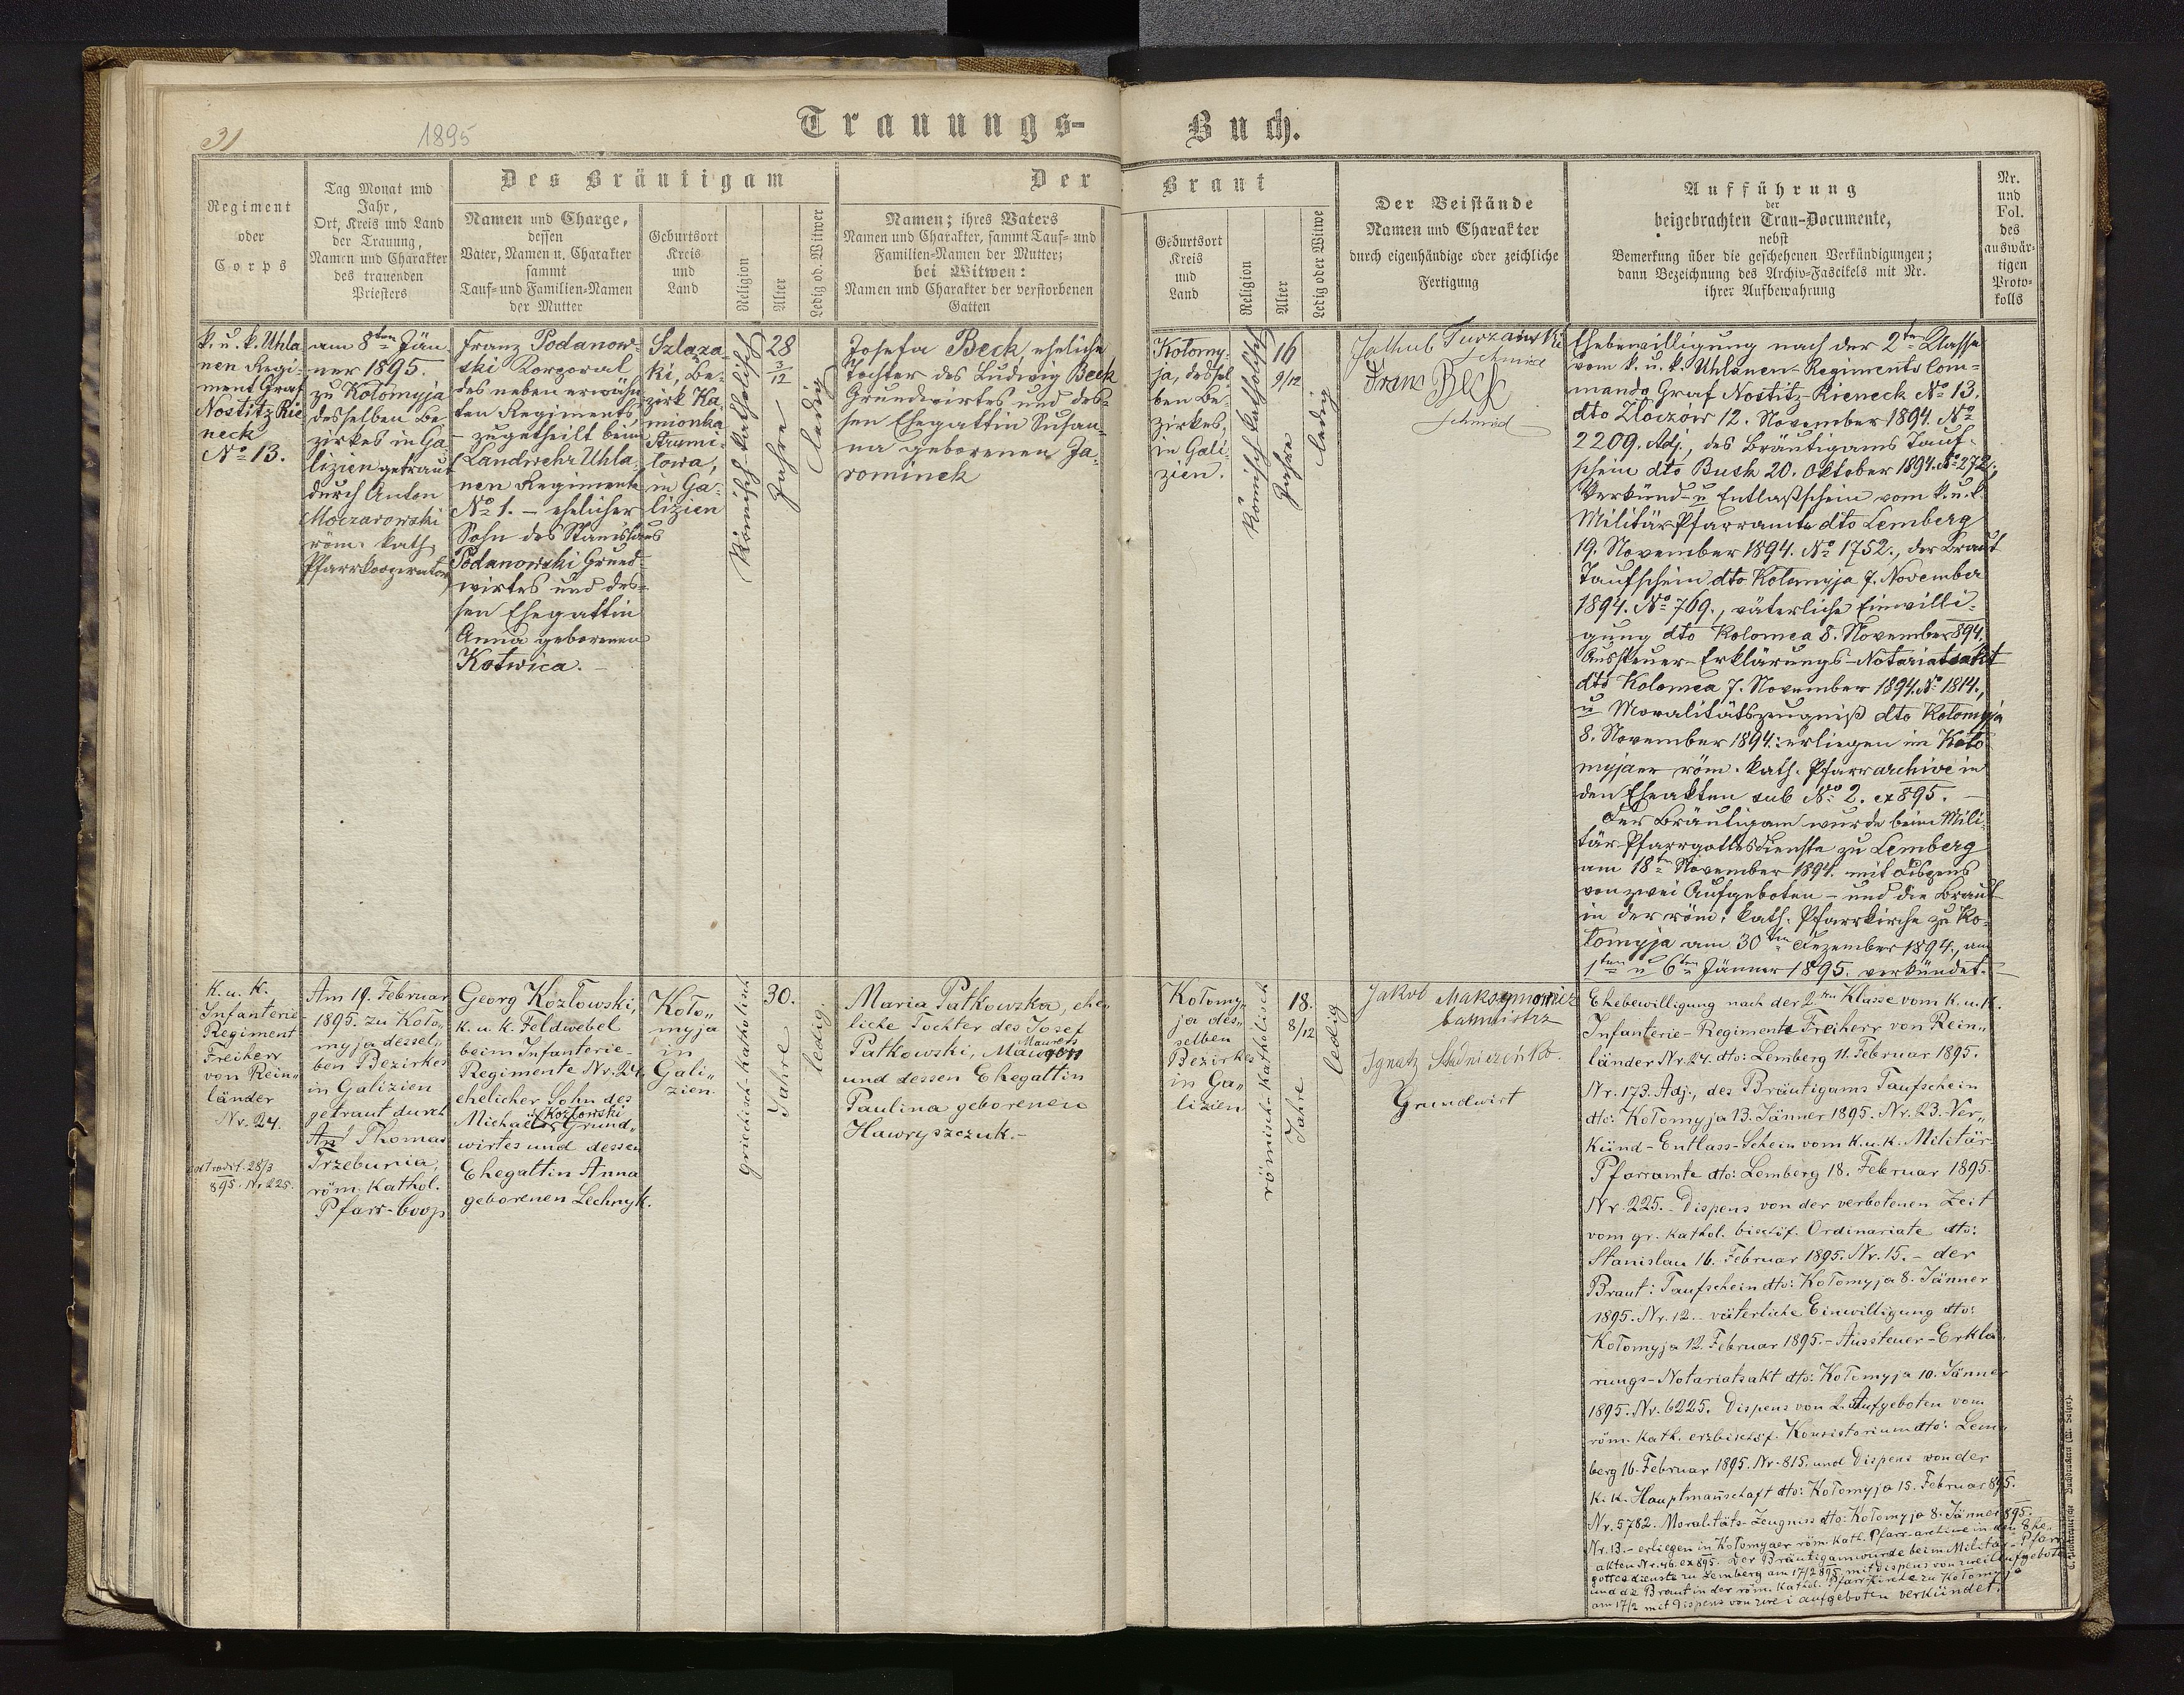 31
1895
Trauungs-Buch.
Regiment
oder
Corps
Tag Monat und
Jahr,
Ort, Kreis und Land
der Trauung,
Namen und Charakter
des trauenden
Priesters
Des Bräutigam
Namen und Charge,
dessen
Vater, Namen u. Charakter
sammt
Tauf- und Familien-Namen
der Mutter
Geburtsort
Kreis
und
Land
Religion
Alter
Ledig od. Witwer
Der Braut
Namen; ihres Vaters
Namen und Charakter, sammt Tauf- und
Familien-Namen der Mutter;
bei Witwen:
Namen und Charakter der verstorbenen
Gatten
Geburtsort
Kreis
und
Land
Religion
Alter
Ledig oder Witwe
Der Beistände
Namen und Charakter
durch eigenhändige oder zeichliche
Fertigung
Aufführung
der
beigebrachten Trau-Documente,
nebst
Bemerkung über die geschehenen Verkündigungen;
dann Bezeichnung des Archiv-Fascikels mit Nr.
ihrer Aufbewahrung
Nr.
und
Fol.
des
auswär-
tigen
Proto-
kolls
k. u. k. Uhla
nen Regi-
ment Graf
Nostitz Rie
neck
No 13.
am 8ten Jän
ner 1895.
zu Kołomyja
desselben Be-
zirkes in Ga-
lizien getraut
durch Anton
Moczarowski
röm. kath.
Pfarrkooperator
Franz Podanow-
ski Korporal
des neben erwähn
ten Regiments,
– zugetheilt beim
Landwehr Uhla-
nen Regimente
No 1. – ehelicher
Sohn des Stanislaus
Podanowski Grund-
wirtes und des-
sen Ehegattin
Anna geborenen
Kotwica. –
Szlaza-
ki, Be-
zirk Ka-
mionka
Strumi-
łowa,
in Ga-
lizien
Römisch-katholisch
28
3/12
Jahre
ledig
Josefa Beck, eheliche
Tochter des Ludwig Beck
Grundwirtes und des-
sen Ehegattin Susan-
na geborenen Ja-
rominek
Kołomy-
ja, dessel-
ben Be-
zirkes,
in Gali-
zien.
Römisch katholisch
16
9/12
Jahre
ledig
Jakub Turzański
Schmied
Franc Beck
Schmied
Ehebewilligung nach der 2ten Classe
vom k. u. k. Uhlanen-Regiments Com-
mando Graf Nostitz-Rieneck No 13.
dto Zloczów 12. November 1894. No
2209. Adj., des Bräutigams Tauf-
schein dto Busk 20. Oktober 1894. No 272,
Verkünd- u Entlaßschein vom k. u. k.
Militär Pfarramte dto Lemberg
19. November 1894. No 1752., der Braut
Taufschein dto Kołomyja 7. November
1894. No 769., väterliche Einwilli-
gung dto Kolomea 8. November 894.
Aussteuer-Erklärungs-Notariatsakt
dto Kolomea 7. November 1894. No 1814.,
u Moralitätszeugniß dto Kołomyja
8. November 1894: erliegen im Koło
myjaer röm. kath. Pfarrarchive in
den Eheakten sub No 2. ex 895. –
Der Bräutigam wurde beim Mili-
tär-Pfarrgottesdienste zu Lemberg
am 18ten November 1894. mit Dispens
von zwei Aufgeboten – und die Braut
in der röm. kath. Pfarrkirche zu Ko-
łomyja am 30ten Dezember 1894., am
1ten u 6ten Jänner 1895. verkündet. –
K. u. K.
Infanterie
Regiment
Freiherr
von Rein„
länder
Nr. 24.
28/3
895. Nr 225.
Am 19. Februar
1895. zu Koło„
myja dessel„
ben Bezirkes
in Galizien
getraut durch
Thomas
Trzebunia,
röm. Kathol.
Pfarr-Coop
Georg Kozłowski,
K. u. k. Feldwebel
beim Infanterie-
Regimente Nr. 24.
ehelicher Sohn des
Kozłowski
Michael Grund„
wirtes und dessen
Ehegattin Anna
geborenen Lechnyk.
Koło„
myja
in
Gali„
zien.
griechisch-katholisch
30.
Jahre
ledig.
Maria Patkowska, ehe„
liche Tochter des Josef
Maurers
Patkowski,
und dessen Ehegattin
Paulina geborenen
Hawryszczuk. –
Kołomy„
ja des„
selben
Bezirkes
in Ga„
lizien
römisch-katholisch
18.
8/12
Jahre
ledig
Jakob Maksymowicz
Ignatz
Grundwirt
Ehebewilligung nach der 2ten Klasse vom K. u. K.
Infanterie-Regimente Freiherr von Rein„
länder Nr. 24. dto: Lemberg 11. Februar 1895.
Nr. 173. Adj., des Bräutigams Taufschein
dto: Kołomyja 13. Jänner 1895. Nr. 23. Ver„
Künd-Entlass-Schein vom K. u. K. Militär-
Pfarramte dto: Lemberg 18. Februar 1895.
Nr. 225. – Dispens von der verbotenen Zeit
vom gr. Kathol. bischöf. Ordinariate dto:
Stanislau 16. Februar 1895. Nr. 15. – der
Braut: Taufschein dto: Kołomyja 8. Jänner
1895. Nr. 12. – väterliche Einwilligung dto:
Kołomyja 12. Februar 1895. – Aussteuer-Erklä„
rungs-Notariatsakt dto: Kołomyja 10. Jänner
1895. Nr. 6225. Dispens von 2. Aufgeboten vom
röm. Kath. erzbischöf. Konsistorium dto: Lem„
berg 16. Februar 1895. Nr. 815. und Dispens von der
K. K. Hauptmanschaft dto: Kołomyja 15. Februar 895.
Nr. 5782. Moralitäts-Zeugniss dto: Kołomyja 8. Jänner 895.
Nr. 13. – erliegen in Kołomyaer röm. Kath. Pfarr-archive in den Ehe„
akten Nr. 46. ex 895. Der Bräutigam wurde beim Militär-Pfarr
gottesdienste zu Lemberg am 17/2 895 mit Dispens von zwei Aufgeboten
und die Braut in der röm. Kathol. Pfarrkirche zu Kołomyja
am 17/2 mit Dispens von zwei aufgeboten verkündet.